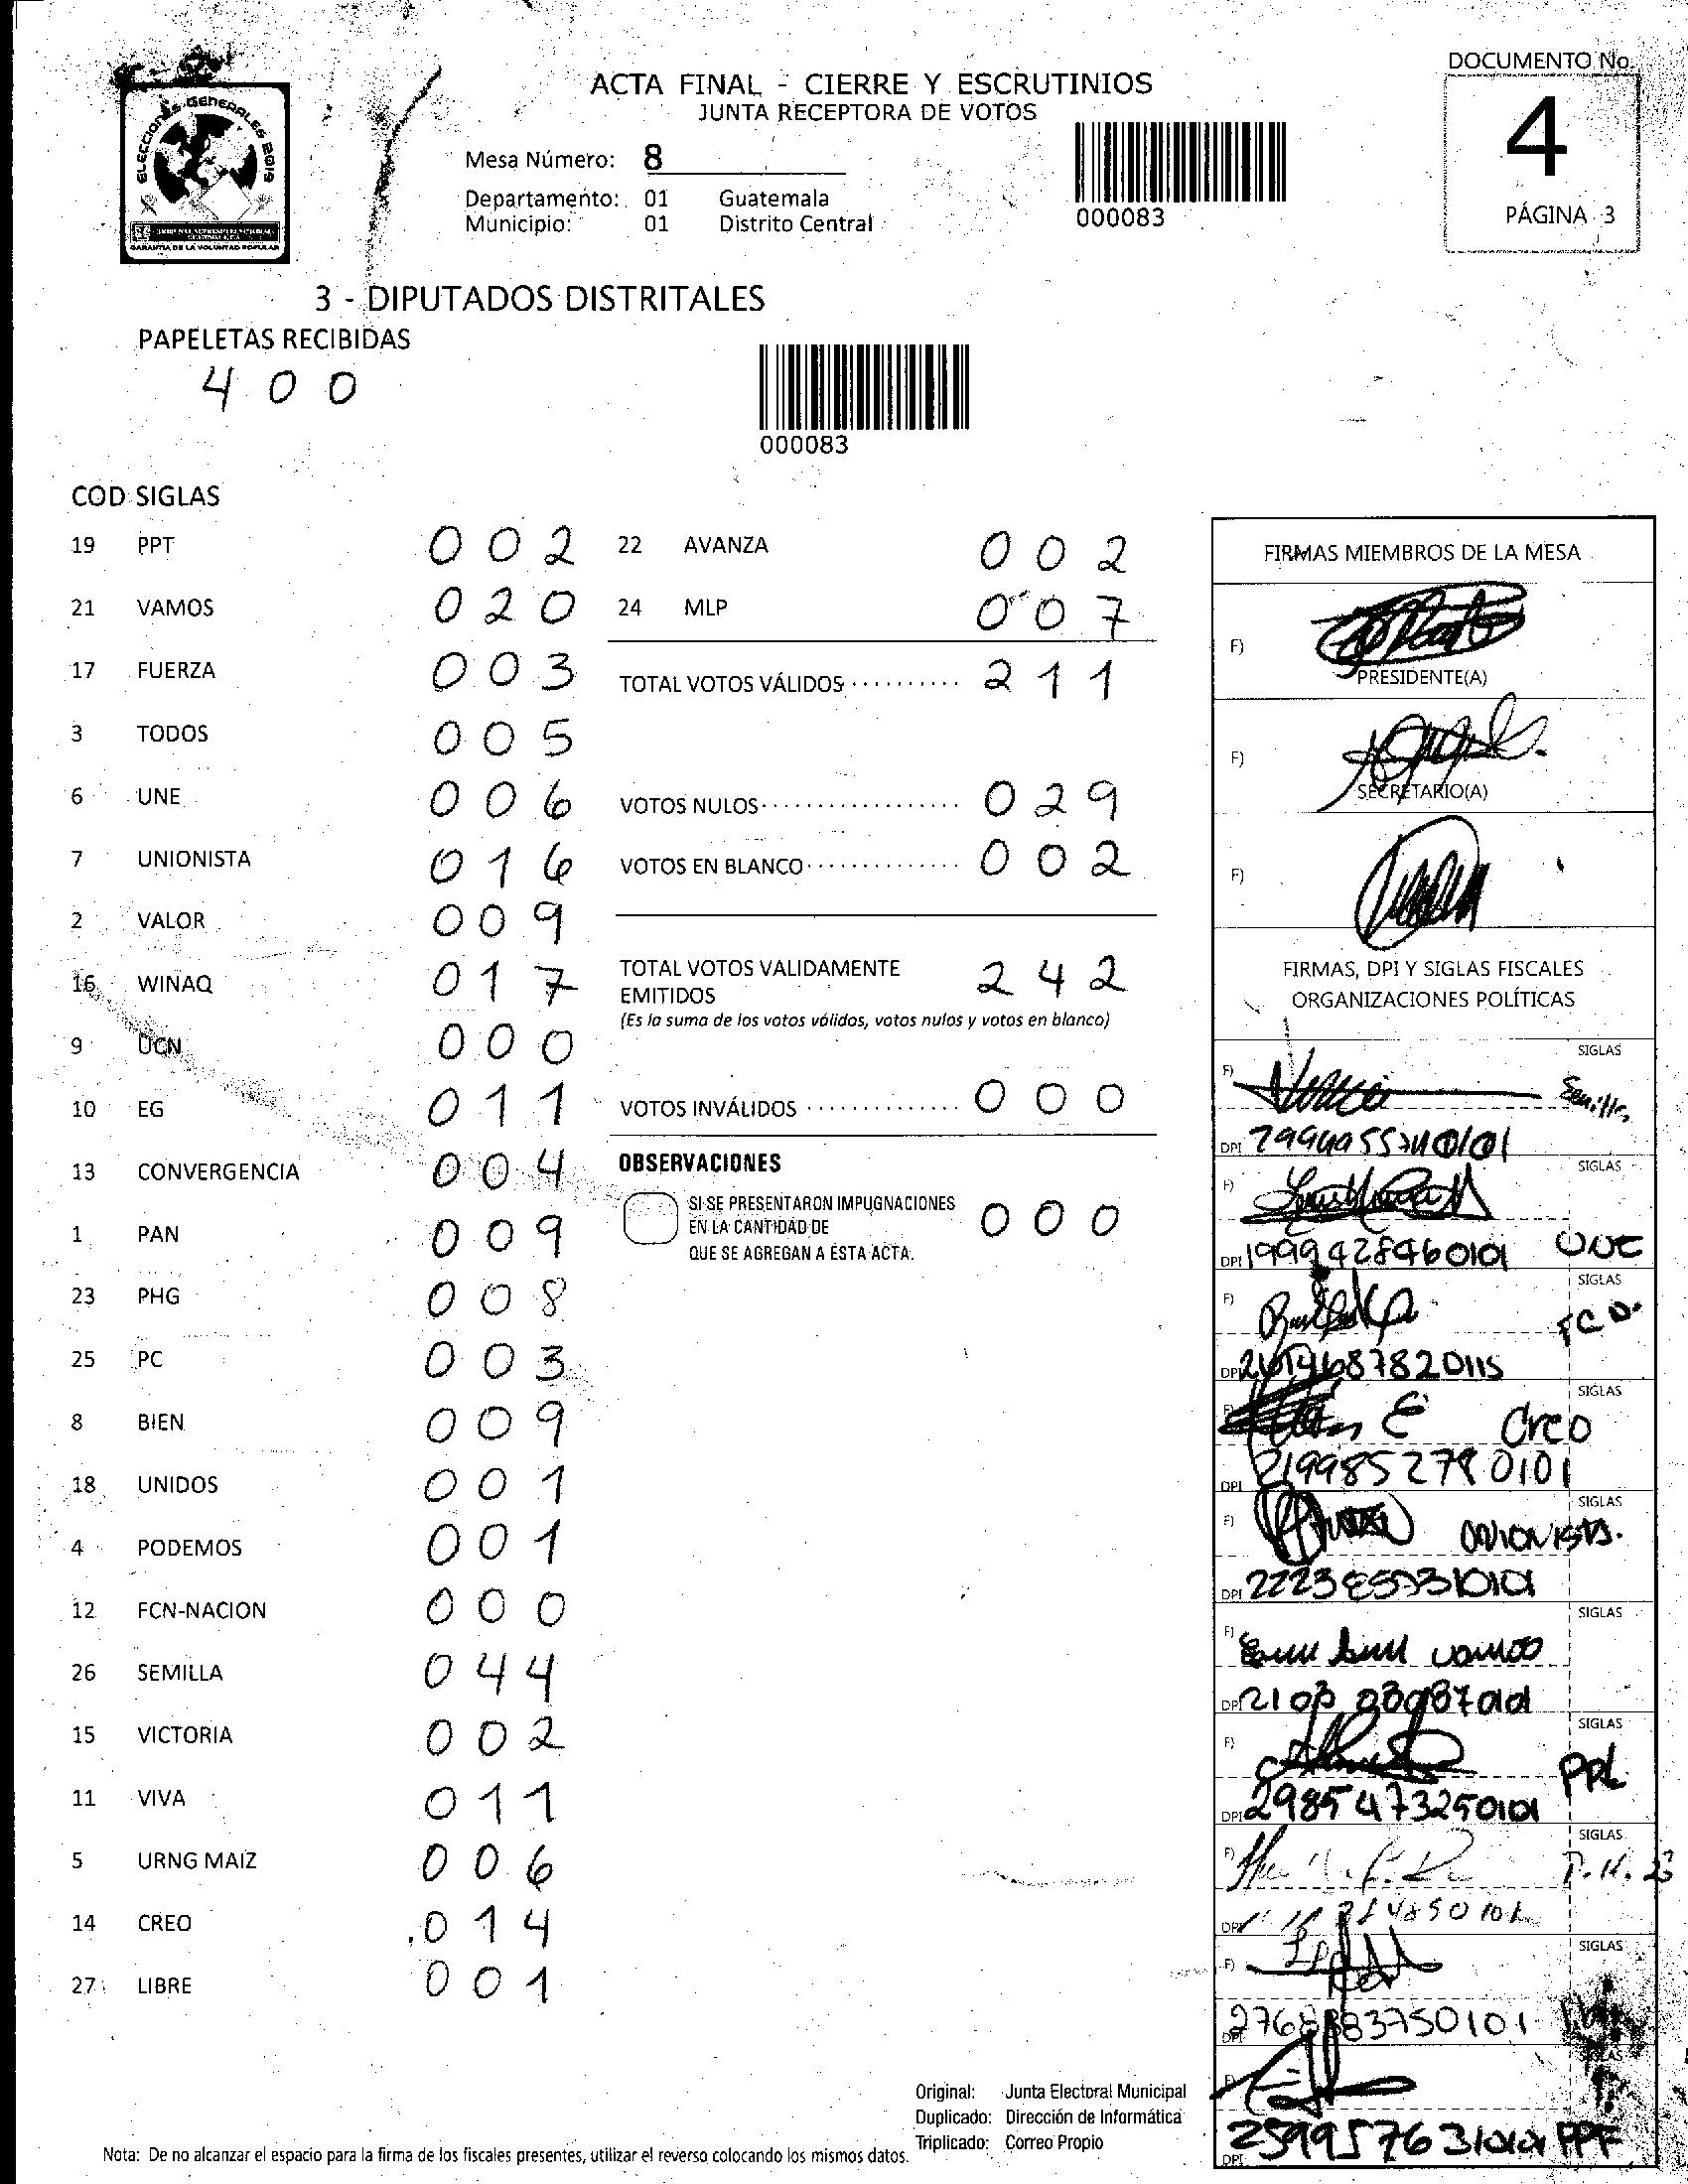 DOCUMENTO No.
4
PÁGINA 3
ELECCIONES GENERALES 2019
GARANTIA DE LA VOLUNTAD POPULAR
ACTA FINAL - CIERRE Y ESCRUTINIOS
JUNTA RECEPTORA DE VOTOS
Mesa Número: 8
Departamento: 01 Guatemala
Municipio: 01 Distrito Central
000083
3 - DIPUTADOS DISTRITALES
PAPELETAS RECIBIDAS
400
000083
COD SIGLAS
19 PPT 002
21 VAMOS 020
17 FUERZA 003
3 TODOS 005
6 UNE 006
7 UNIONISTA 016
2 VALOR 009
16 WINAQ 017
9 UCN 000
10 EG 011
13 CONVERGENCIA 004
1 PAN 009
23 PHG 008
25 PC 003
8 BIEN 009
18 UNIDOS 001
4 PODEMOS 001
12 FCN-NACION 000
26 SEMILLA 044
15 VICTORIA 002
11 VIVA 011
5 URNG MAIZ 006
14 CREO 014
27 LIBRE 001
22 AVANZA 002
24 MLP 007
TOTAL VOTOS VÁLIDOS 211
VOTOS NULOS 029
VOTOS EN BLANCO 002
TOTAL VOTOS VALIDAMENTE
EMITIDOS 242
(Es la suma de los votos válidos, votos nulos y votos en blanco)
VOTOS INVÁLIDOS 000
OBSERVACIONES
SI SE PRESENTARON IMPUGNACIONES
EN LA CANTIDAD DE 000
QUE SE AGREGAN A ESTA ACTA.
FIRMAS MIEMBROS DE LA MESA
F)
PRESIDENTE(A)
F)
SECRETARIO(A)
F)
FIRMAS, DPI Y SIGLAS FISCALES
ORGANIZACIONES POLÍTICAS
SIGLAS
F) Semilla
DPI
SIGLAS
F)
DPI 1999428460101 UNE
SIGLAS
F)
DPI
SIGLAS
F) Creo
DPI 219985279 0101
SIGLAS
F) UNIONISTA.
DPI
SIGLAS
F) vamos
DPI
SIGLAS
F)
DPI 2985473250101
SIGLAS
F)
DPI
SIGLAS
F)
DPI
SIGLAS
F)
DPI PPF
Original: Junta Electoral Municipal
Duplicado: Dirección de Informática
Triplicado: Correo Propio
Nota: De no alcanzar el espacio para la firma de los fiscales presentes, utilizar el reverso colocando los mismos datos.